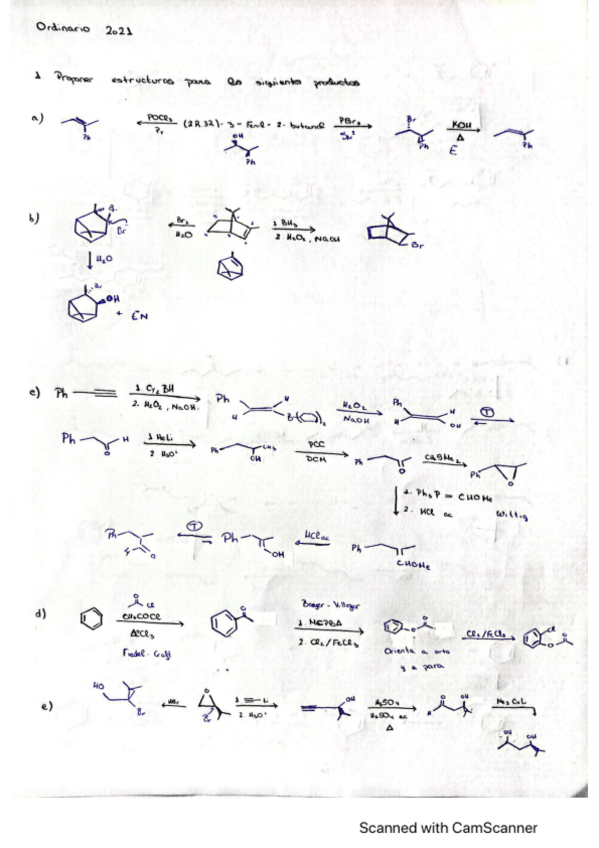 Ordinario 2021
1 Proponer estructuras para los siguientes productos
a)
Ph
POCl3
Py
(2R,3R)-3-Fenil-2-butanol
OH
Ph
PBr3
SN2
Br
Ph
KOH
Δ
E
Ph
b)
Br
Br2
H2O
1 BH3
2 H2O2, NaOH
Br
H2O
Br
OH
+ EN
c)
Ph
1. Cy2BH
2. H2O2, NaOH
Ph
H
H
B
2
H2O2
NaOH
Ph
H
H
OH
T
Ph
O
H
1 MeLi
2 H3O+
Ph
CH3
OH
PCC
DCM
Ph
O
CH2SMe2
Ph
O
1. Ph3P = CHOMe
2. HCl ac
Wittig
Ph
T
Ph
OH
HCl ac
Ph
CHOMe
d)
O
Cl
CH3COCl
AlCl3
Friedel-Craft
O
Baeyer-Villiger
1. MCPBA
2. Cl2/FeCl3
O
O
Orienta a orto
y a para
Cl2/FeCl3
Cl
O
O
e)
HO
Br
HBr
O
1. Li
2 H3O+
OH
H2SO4
H2SO4 ac
Δ
O
H
OH
Me2CuL
OH
OH
Scanned with CamScanner